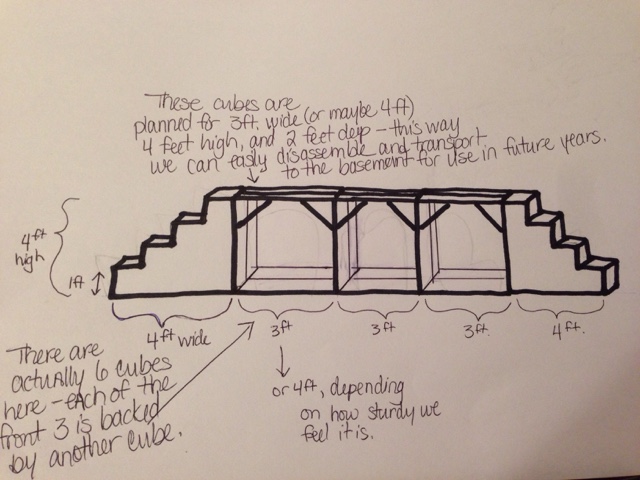 These cubes are
planned for 3ft. wide (or maybe 4ft)
4 feet high, and 2 feet deep - this way
we can easily disassemble and transport
to the basement for use in future years.
4ft
high
1ft
4ft wide
3ft
3ft
3ft.
4ft.
There are
actually 6 cubes
here - each of the
front 3 is backed
by another cube.
or 4ft, depending
on how sturdy we
feel it is.